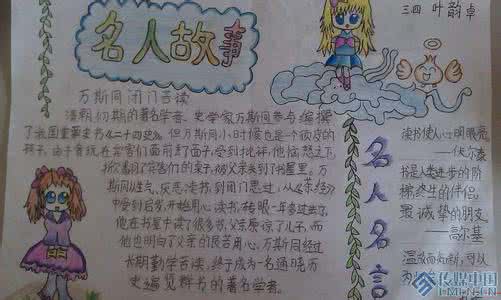 三四 叶韵卓
名人故事
万斯同闭门苦读
清朝初期的著名学者、史学家万斯同参与编撰
了我国重要史书《二十四史》。但万斯同小时候也是一个顽皮的
孩子。由于贪玩在宾客们面前丢了面子，受到批评，他恼怒之下
掀翻了宾客们的桌子，被父亲关到了书屋里。万
斯同从生气、厌恶读书，到闭门思过，从《茶经》
中受到启发，开始用心读书。转眼一年多过去了，
他在书屋中读了很多书，父亲原谅了儿子，而
他也明白了父亲的良苦用心。万斯同经过
长期勤学苦读，终于成为一名通晓历
史、遍览群书的著名学者。
名人名言
读书使人心明眼亮
——伏尔泰
书是人类进步的阶
梯，终生的伴侣，
最诚挚的朋友
——高尔基
温故而知新，可以
传媒中国
CMCN.CN